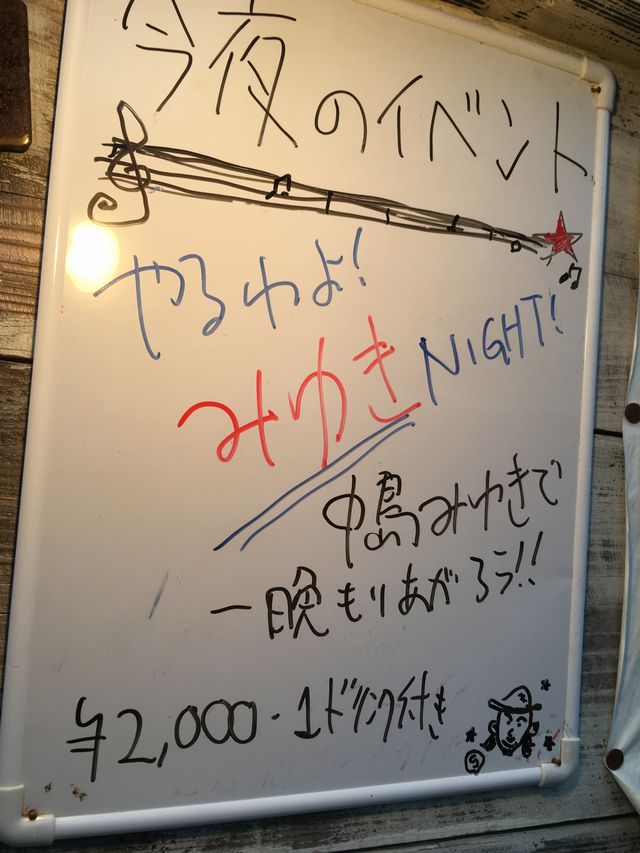 今夜のイベント
やるわよ!
みゆきNIGHT!
中島みゆきで
一晩もりあがろう!!
¥2,000-1ドリンク付き